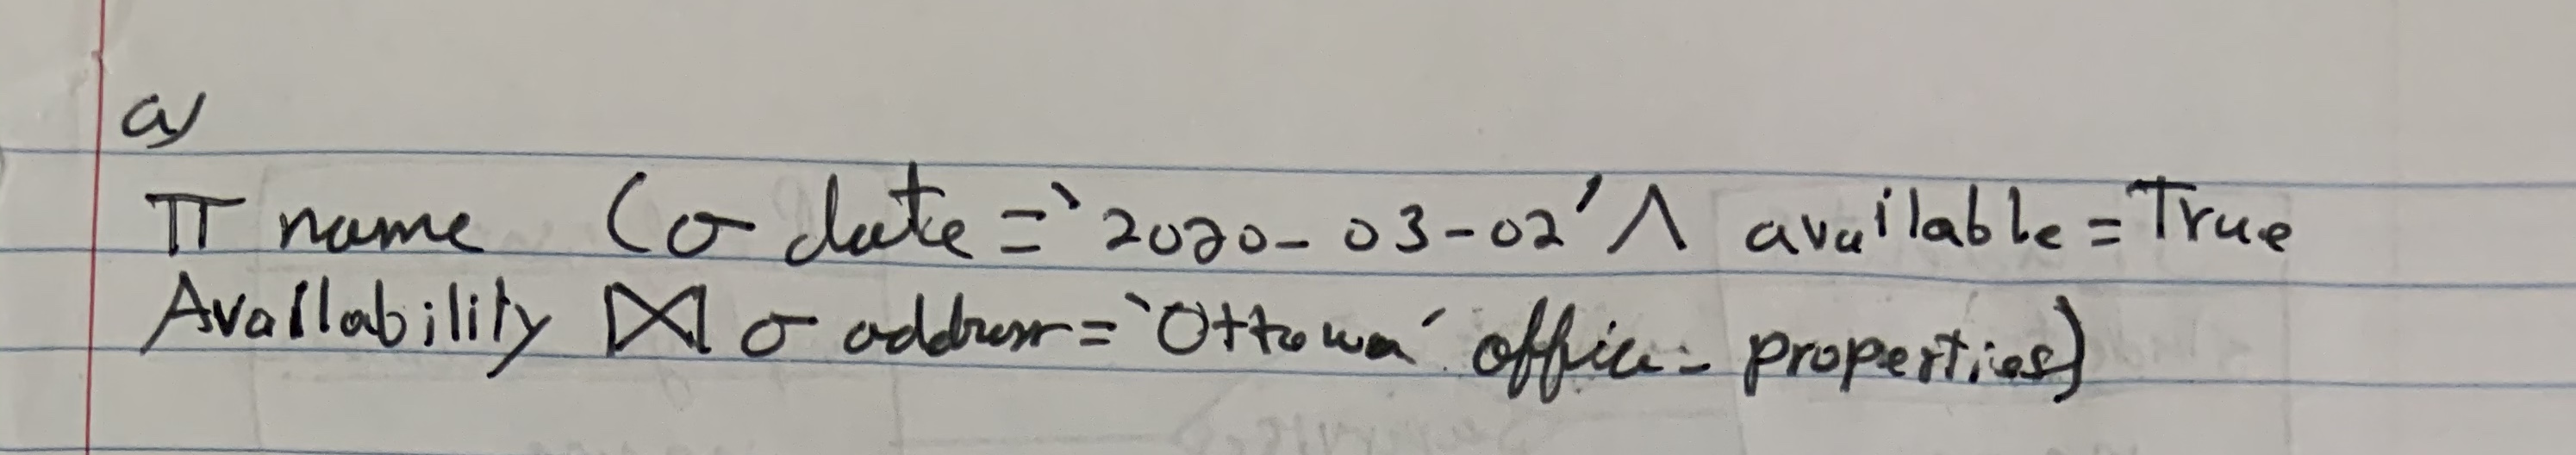 a)
π name (σ date = '2020-03-02' ∧ available = True
Availability ⋈ σ address = 'Ottawa' office_properties)